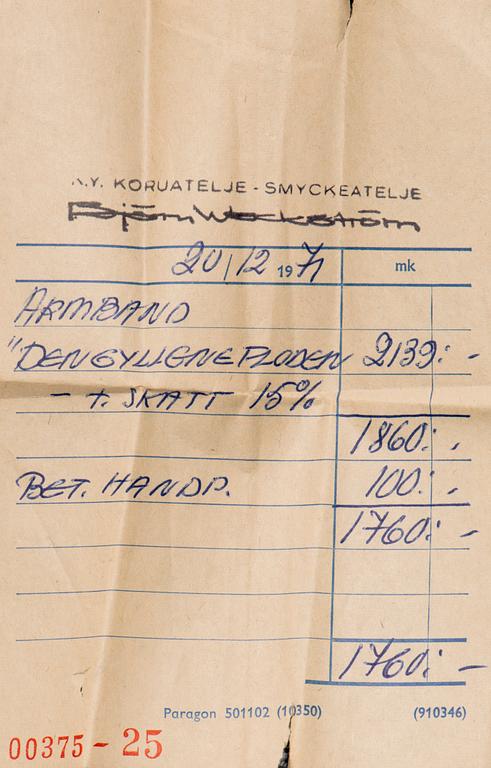 K.Y. KORUATELJE - SMYCKEATELJE
Björn Weckström
20/12 1971 mk
ARMBAND
"DEN GYLLENE FLODEN 2139:-
- t. SKATT 15%
1860:-
BET. HANDP. 100:-
1760:-
1760:-
Paragon 501102 (10350) (910346)
00375-25